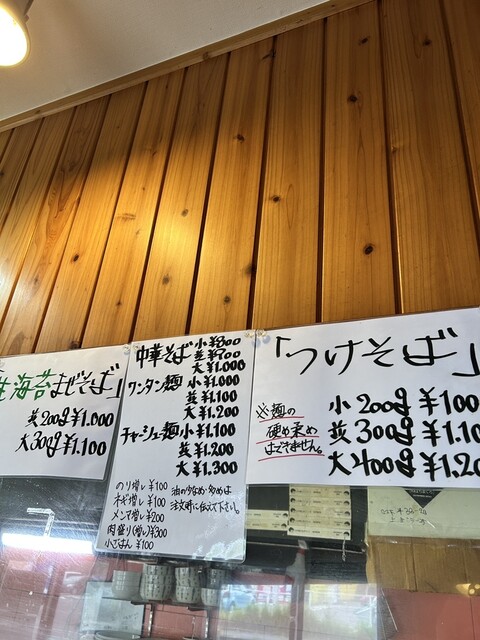 生海苔まぜそば」
並200g ¥1.000
大300g ¥1.100
中華そば 小¥800
並¥900
大¥1.000
ワンタン麺 小¥1.000
並¥1.100
大¥1.200
チャーシュー麺 小¥1.100
並¥1.200
大¥1.300
のり増し ¥100
ネギ増し ¥100
メンマ増し ¥200
肉盛り(増し) ¥300
小ごはん ¥100
油の少なめ・多めは
注文時に伝えて下さい。
「つけそば」
小200g ¥100
並300g ¥1.10
大400g ¥1.20
※麺の
硬め柔め
はできません。